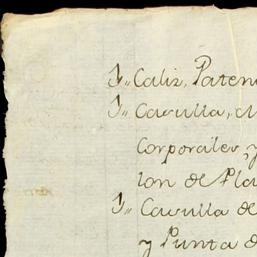 1,, Caliz, Paten
1,, Casulla, 
Corporales, y
lon de Pla
1,, Casulla de
y Punta d